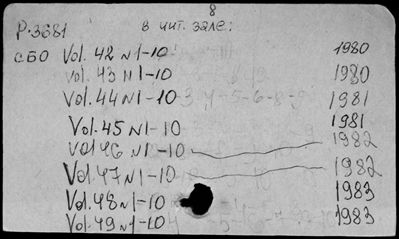 8
Р-3681 в чит. зале:
СБО Vol. 42 N 1-10 1980
Vol. 43 N 1-10 1980
Vol. 44 N 1-10 1981
Vol. 45 N 1-10 1981
Vol 46 N 1-10 1982
Vol. 47 N 1-10 1982
Vol. 48 N 1-10 1983
Vol. 49 N 1-10 1983